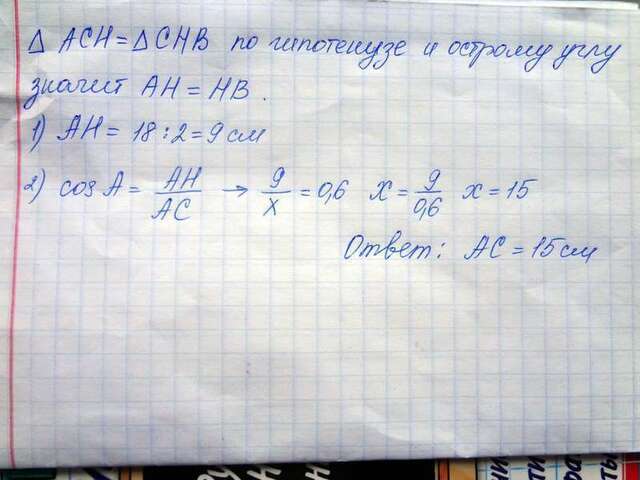 Δ ACH = Δ CHB по гипотенузе и острому углу
значит AH = HB.
1) AH = 18 : 2 = 9 см
2) cos A = AH/AC → 9/x = 0,6 x = 9/0,6 x = 15
Ответ: AC = 15 см